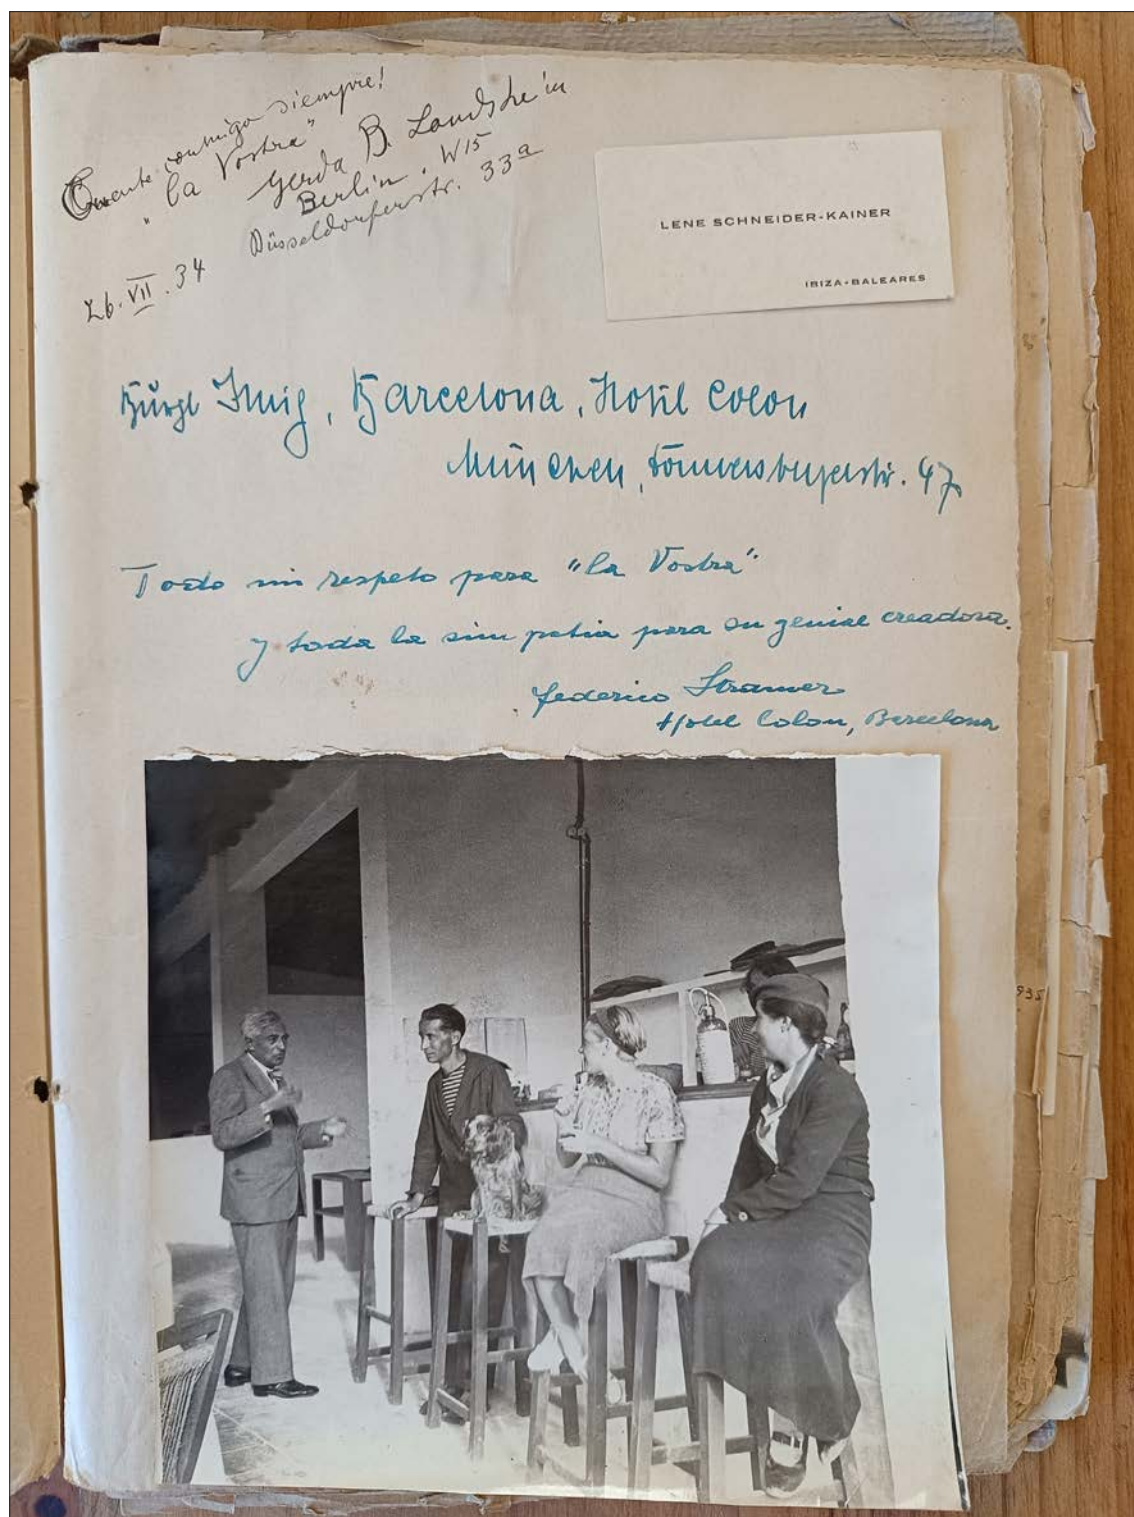 Cuente conmigo siempre!
"la Vostra"
Gerda B. Landshe'in
Berlin. W15
Düsseldorferstr. 33a
26.VII.34
LENE SCHNEIDER-KAINER
IBIZA-BALEARES
Barcelona, Hotel Colon
München, 47
Todo mi respeto para "la Vostra"
y toda la simpatia para su genial creadora.
Federico Stramer
Hotel Colon, Barcelona